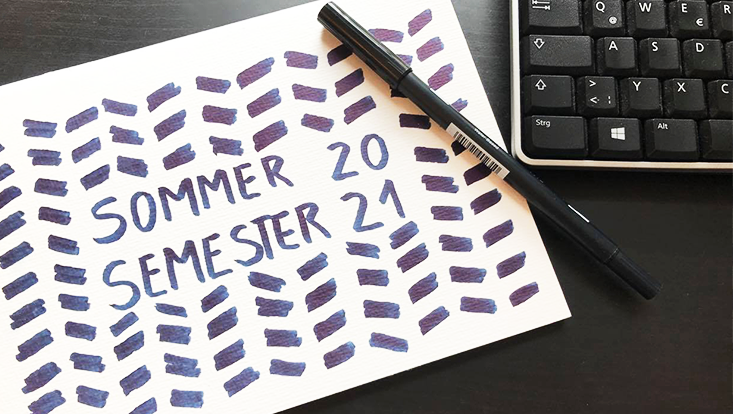 SOMMER 20
SEMESTER 21
Q W E R
@ €
A S D F
> Y X C
< |
Strg Alt